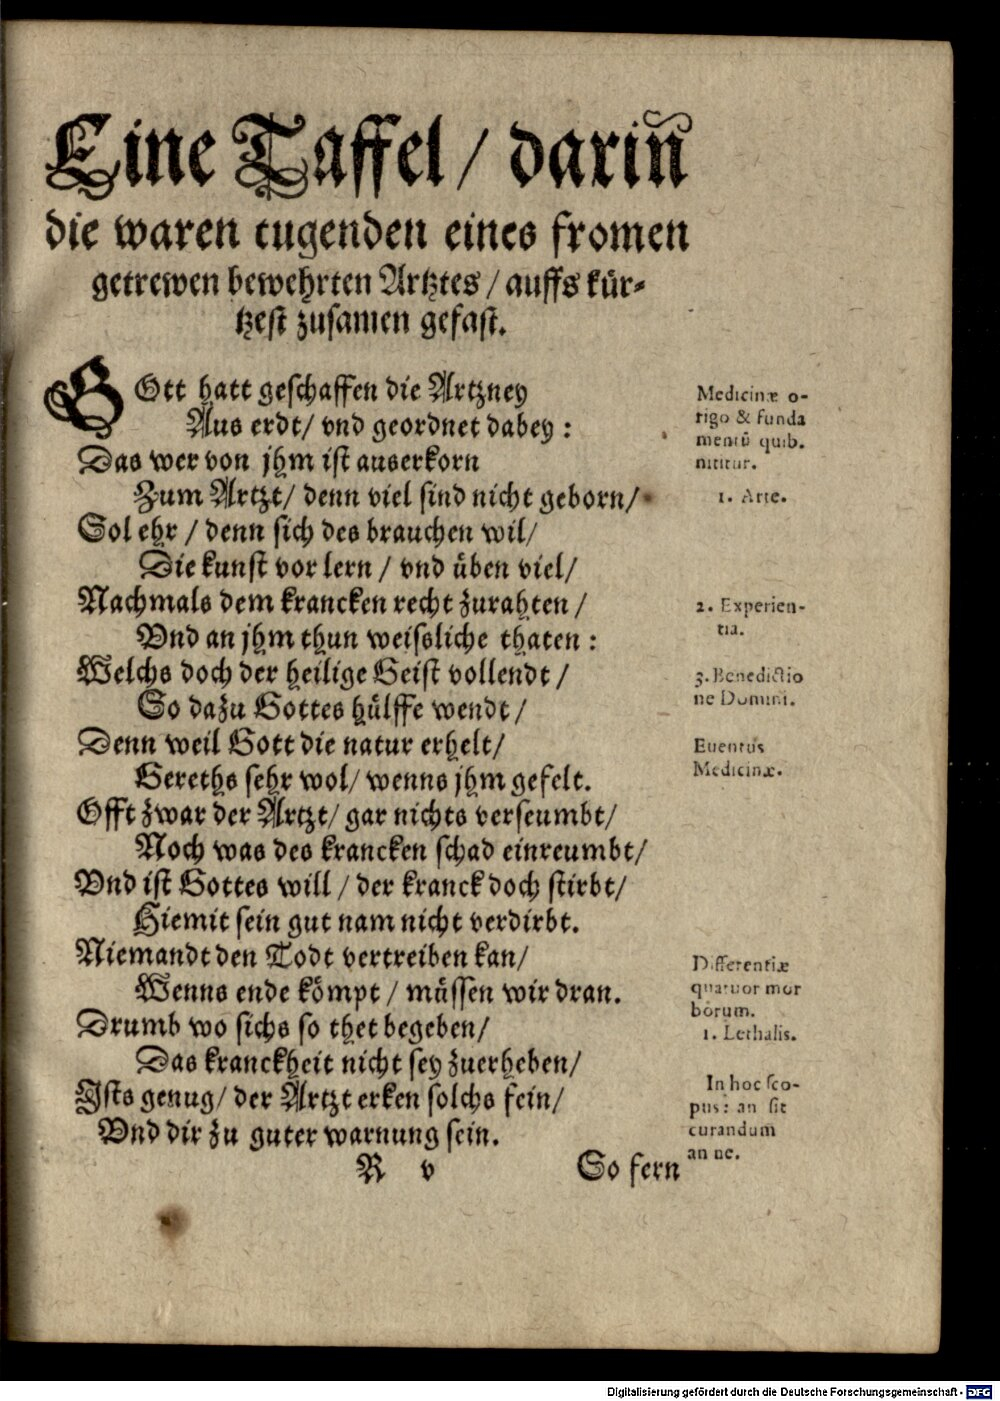 Eine Taffel / dariñ
die waren tugenden eines fromen
getrewen bewehrten Artztes / auffs kür-
tzest zusamen gefast.
GOtt hatt geschaffen die Artzney
Aus erdt / vnd geordnet dabey :
Das wer von jhm ist auserkorn
Zum Artzt / denn viel sind nicht geborn /
Sol ehr / denn sich des brauchen wil /
Die kunst vor lern / vnd üben viel /
Nachmals dem krancken recht zurahten /
Vnd an jhm thun weisliche thaten :
Welchs doch der heilige Geist vollendt /
So dazu Gottes hülffe wendt /
Denn weil Gott die natur erhelt /
Gereths sehr wol / wenns jhm gefelt.
Offt zwar der Artzt / gar nichts verseumbt /
Noch was des krancken schad einreumbt /
Vnd ist Gottes will / der kranck doch stirbt /
Hiemit sein gut nam nicht verdirbt.
Niemandt den Todt vertreiben kan /
Wenns ende kömpt / müssen wir dran.
Drumb wo sichs so thet begeben /
Das kranckheit nicht sey zuerheben /
Ists genug / der Artzt erken solchs fein /
Vnd dir zu guter warnung sein.
R v
So fern
Medicinæ o-
rigo & funda
mentū quib.
nititur.
1. Arte.
2. Experien-
tia.
3. Benedictio
ne Domini.
Euentus
Medicinæ.
Differentiæ
quatuor mor
borum.
1. Lethalis.
In hoc sco-
pus: an sit
curandum
an ne.
Digitalisierung gefördert durch die Deutsche Forschungsgemeinschaft - DFG